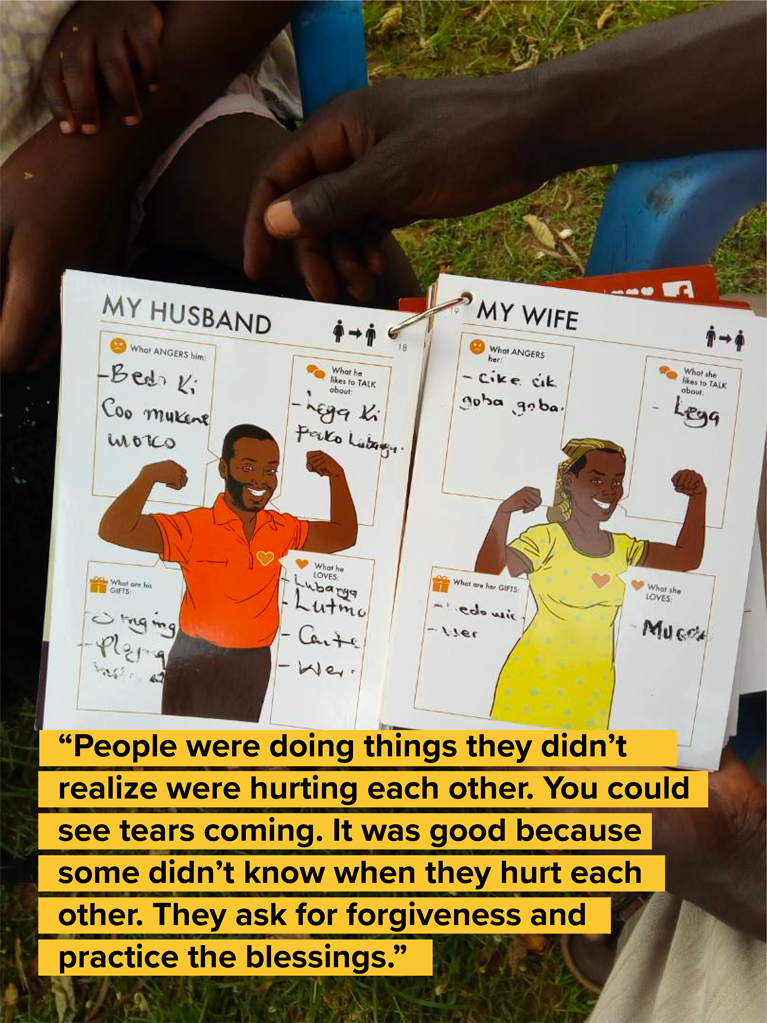 MY HUSBAND
What ANGERS him:
- Bedo Ki
Coo mukene
woko
What he
likes to TALK
about:
- Lega Ki
18
What are his
GIFTS:
- Singing
- Playing
What he
LOVES:
- Lubanga
- Lutmo
- Wer
MY WIFE
19
What ANGERS
her:
- Cik cik
goba goba.
What she
likes to TALK
about:
- Lega
What are her GIFTS:
- Wer
What she
LOVES:
“People were doing things they didn’t
realize were hurting each other. You could
see tears coming. It was good because
some didn’t know when they hurt each
other. They ask for forgiveness and
practice the blessings.”